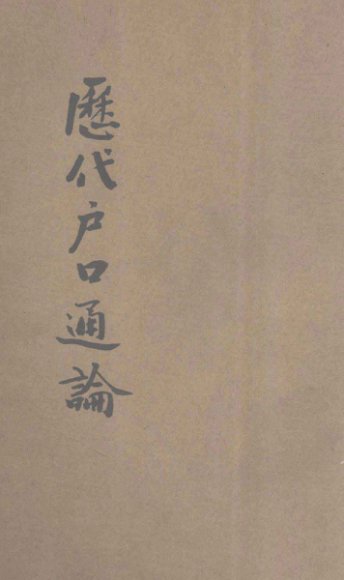 歷代户口通論